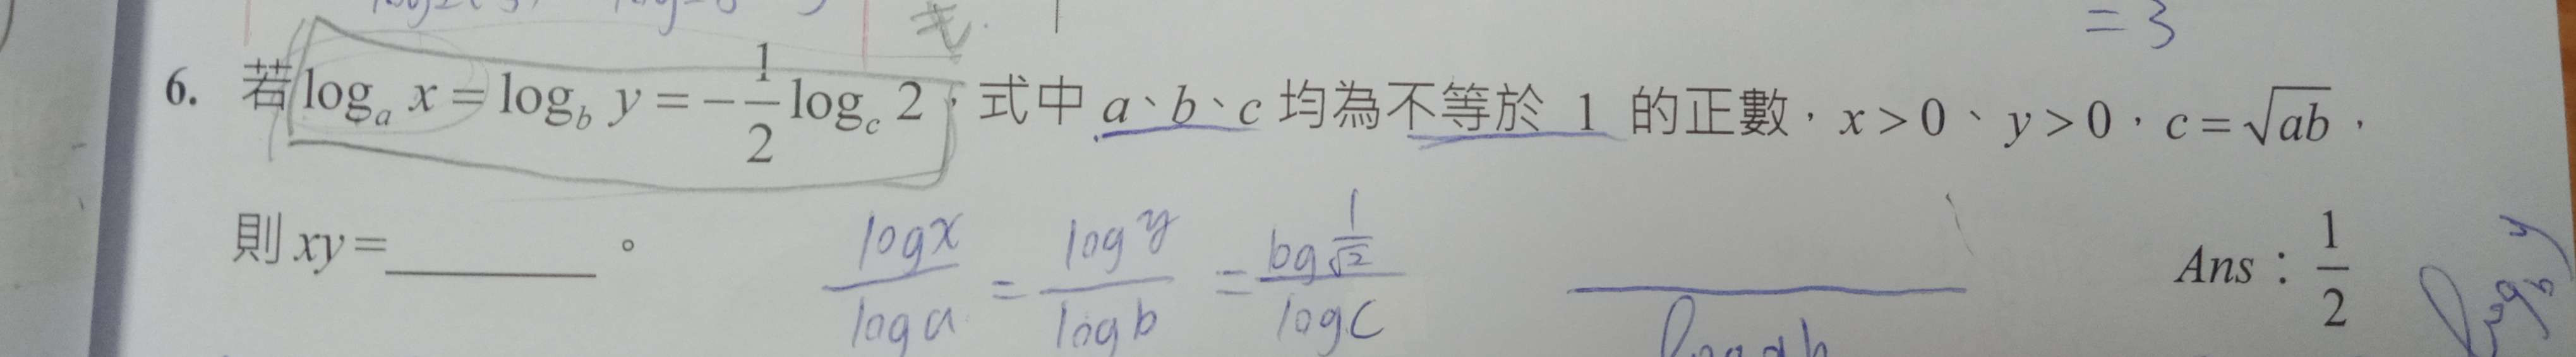 = 3
6. 若 logₐ x = log_b y = -1/2 log_c 2，式中 a、b、c 均為不等於 1 的正數，x > 0、y > 0，c = √ab，
則 xy = ______。 Ans：1/2
log x / log a = log y / log b = log 1/√2 / log c
log_b y